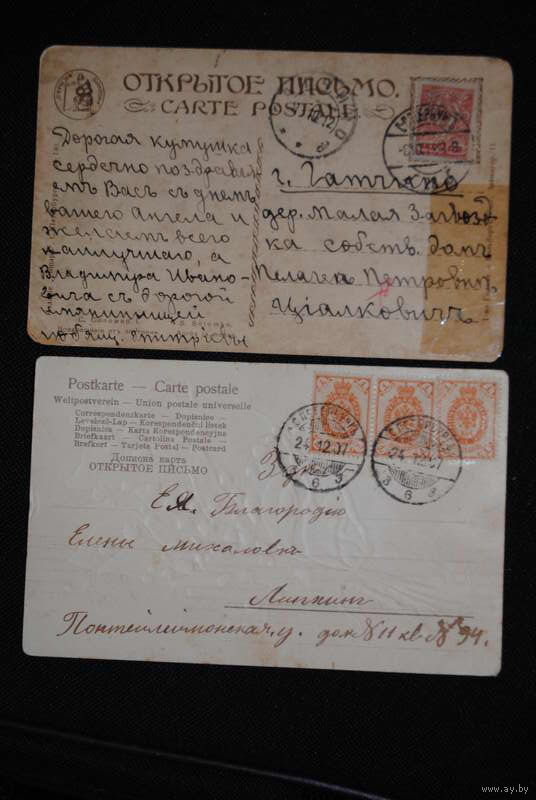 ОТКРЫТОЕ ПИСЬМО.
CARTE POSTALE
Дорогая кумушка
сердечно поздравля
емъ Васъ съ днемъ
вашего Ангела и
желаемъ всего
наилучшаго, а
Владимiра Ивано-
вича съ дорогой
имянинницей
г. Гатчино
дер. Малая Загвозд
ка собств. домъ
Пелагеи Петровнѣ
Цiалковичъ
Postkarte — Carte postale
Weltpostverein — Union postale universelle
Correspondenzkarte — Dopisnice —
Levelezö-Lap — Korespondenční lístek
Dopisnica — Karta Korespondencyjna
Briefkaart — Cartolina Postale —
Brefkort — Tarjeta Postal — Postcard
Дописна карта
ОТКРЫТОЕ ПІСЬМО
С.ПЕТЕРБУРГЪ
24.12.07
6
С.ПЕТЕРБУРГЪ
24.12.07
6
Здѣсь
Ея Благородiю
Елены Михаловнѣ
Пантелеймонская. у. дом № 11 кв. № 94.
www.ay.by